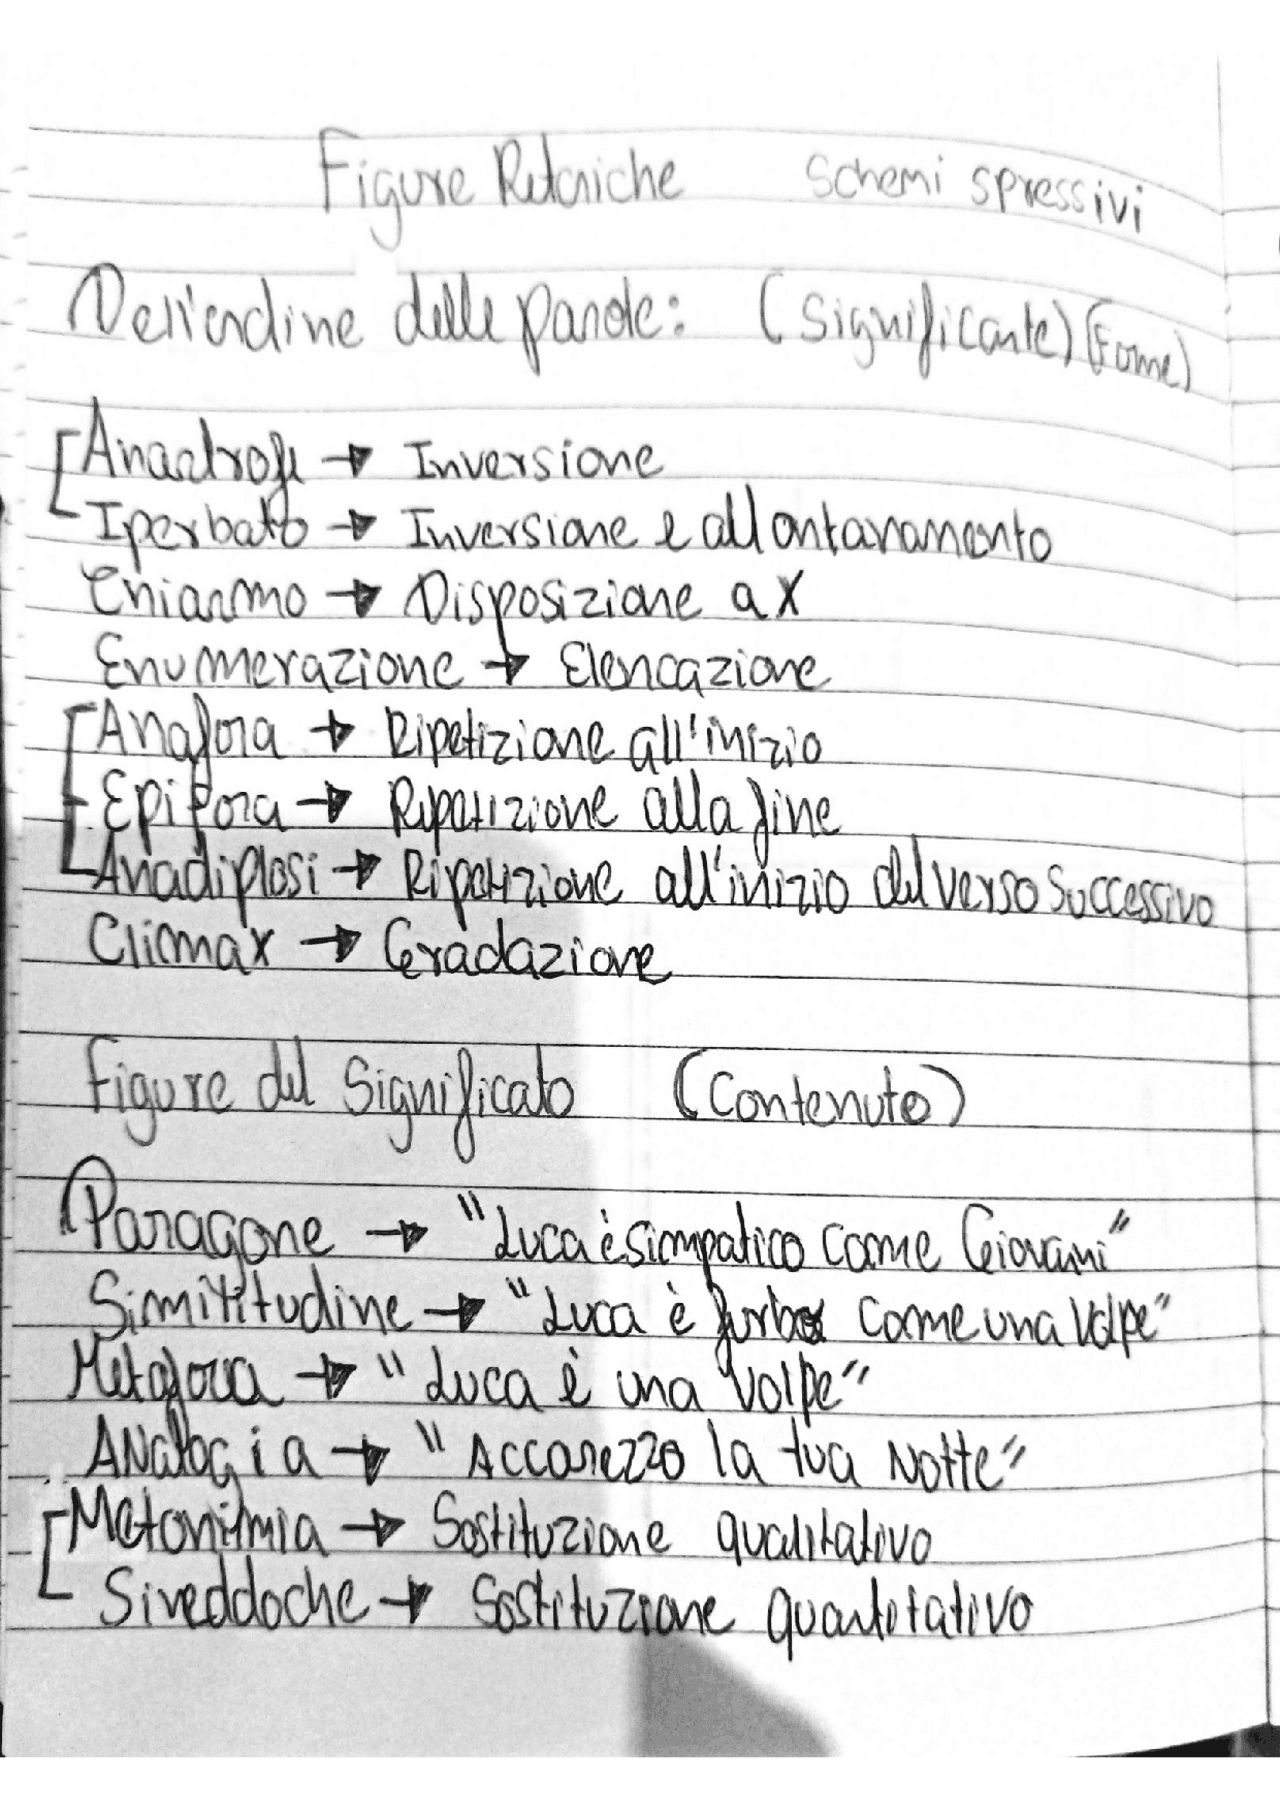 Figure Retoriche Schemi spressivi
Dell'ordine delle parole: (Significante) (Forme)
Anastrofe → Inversione
Iperbato → Inversione e allontanamento
Chiasmo → Disposizione a X
Enumerazione → Elencazione
Anafora → Ripetizione all'inizio
Epifora → Ripetizione alla fine
Anadiplosi → Ripetizione all'inizio del verso successivo
Climax → Gradazione
Figure del Significato (Contenuto)
Paragone → "Luca è simpatico come Giovanni"
Similitudine → "Luca è furbo come una volpe"
Metafora → "Luca è una volpe"
Analogia → "Accarezzo la tua Notte"
Metonimia → Sostituzione qualitativo
Sineddoche → Sostituzione quantitativo